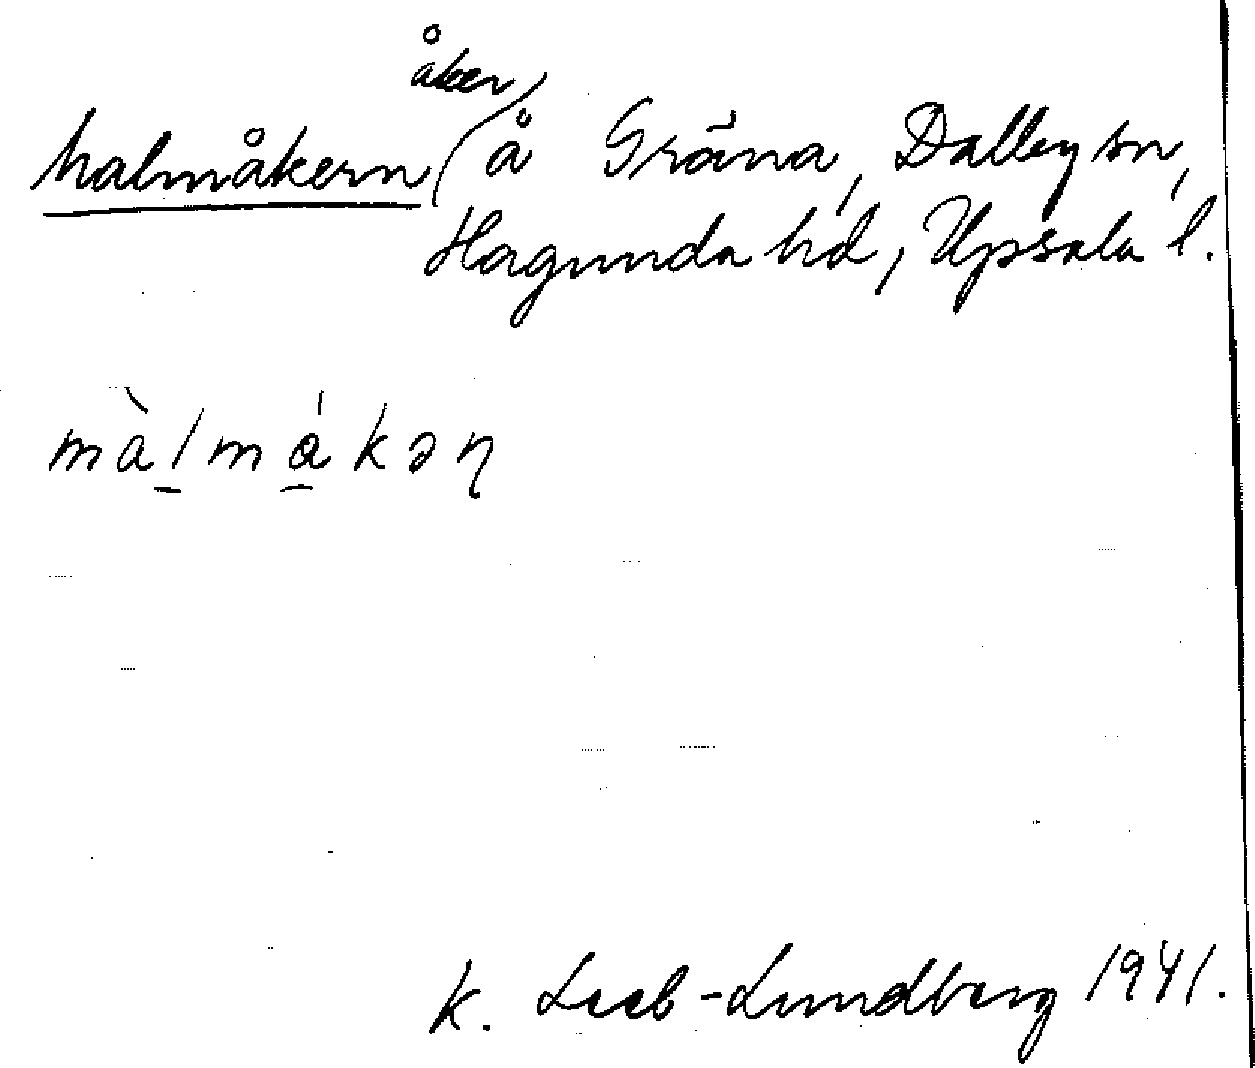 åker
Malmåkern å Gräna, Dalby sn,
Hagunda hd, Upsala l.
màl̠mǻ̠kəɳ
K. Leeb-Lundberg 1941.